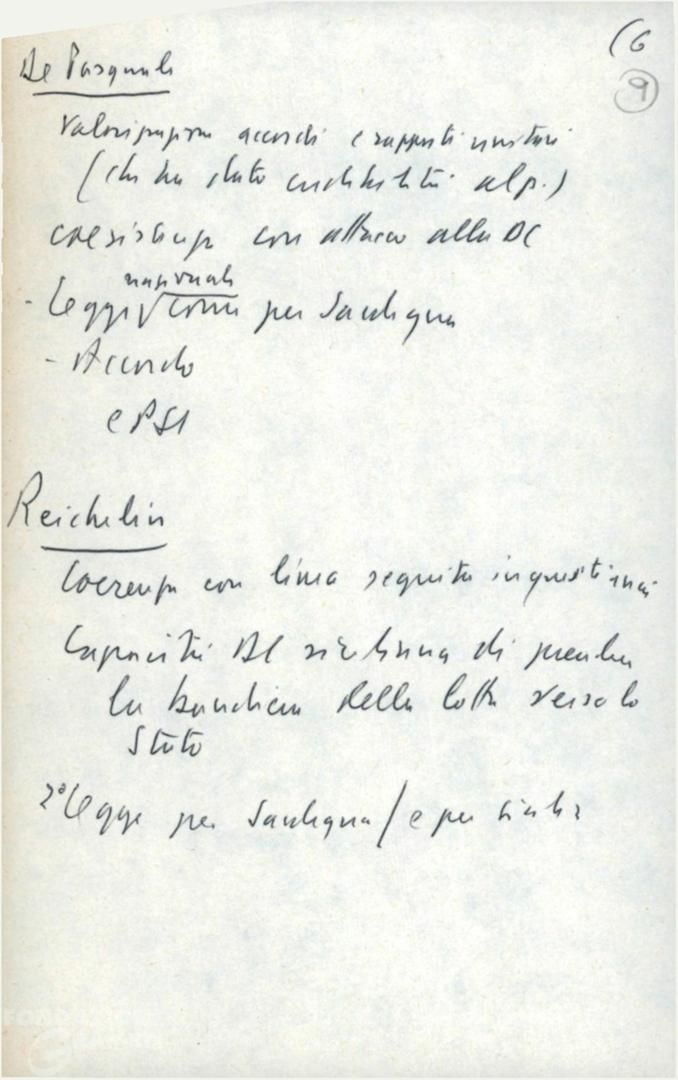 (6
9
De Pasquale
Valorizzazione accordi e rapporti unitari
(che ha dato credibilità al p.)
coesistenza con attacco alla DC
nazionali
- Leggi √ come per Sardegna
- Accordo
e PSI
Reichelin
Coerenza con linea seguita in questi anni
Capacità DC siciliana di prendere
la bandiera della lotta verso lo
Stato
2° Legge per Sardegna / e per Sicilia